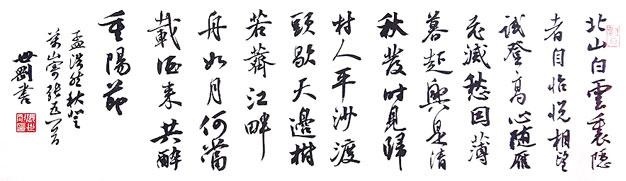 北山白雲裏隱
者自怡悅相望
試登高心隨雁
飛滅愁因薄
暮起興是清
秋發時見歸
村人平沙渡
頭歇天邊樹
若薺江畔
舟如月何當
載酒來共醉
重陽節
孟浩然秋登
萬山寄張五
世剛書